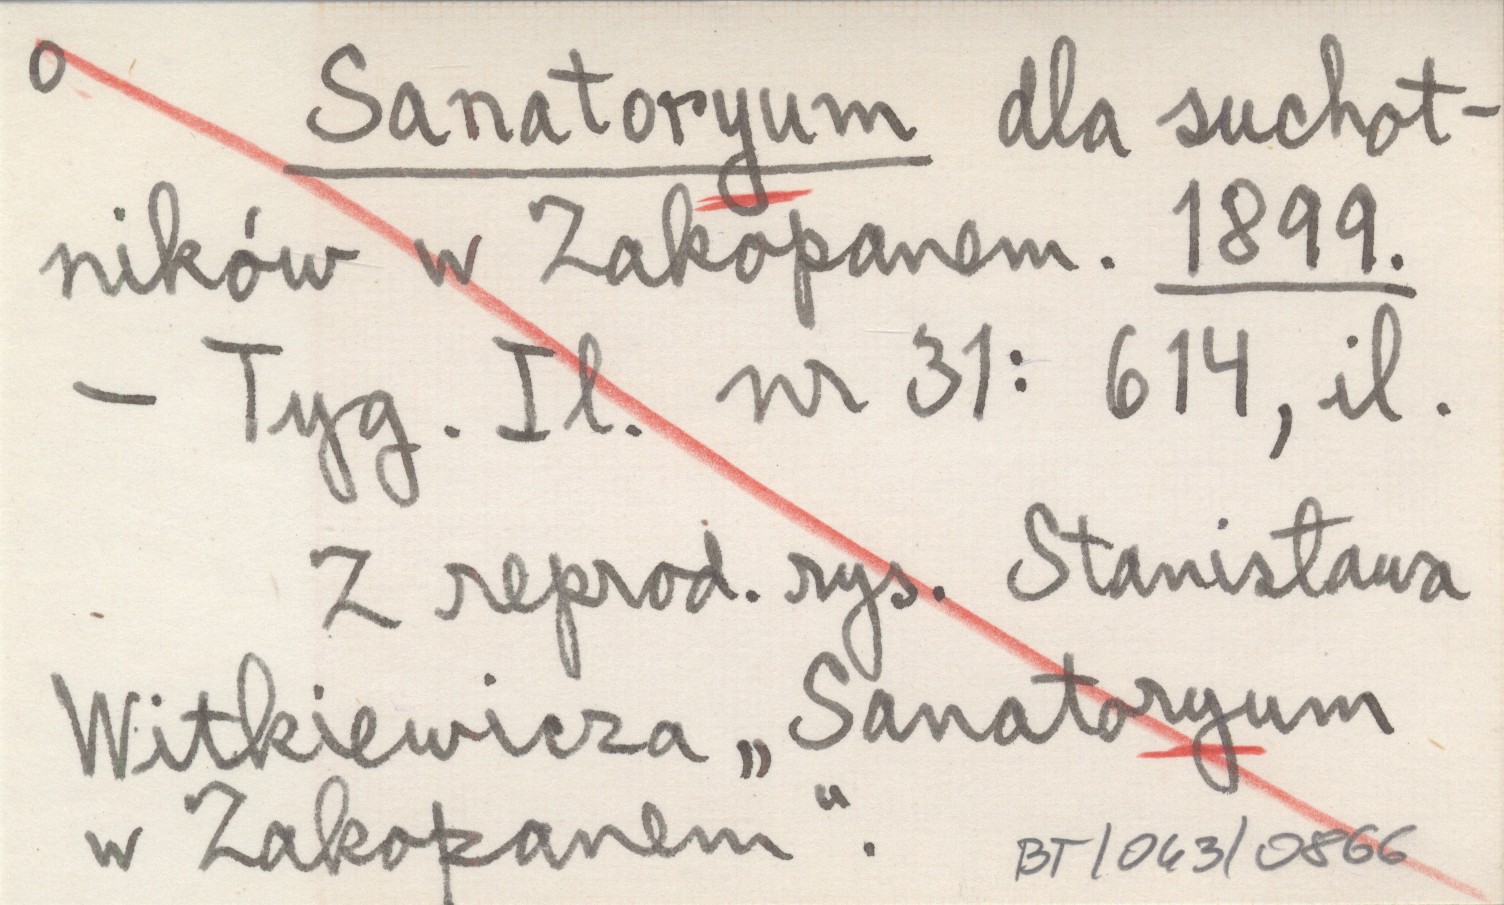 o Sanatoryum dla suchot-
ników w Zakopanem. 1899.
- Tyg. Il. nr 31: 614, il.
Z reprod. rys. Stanisława
Witkiewicza „Sanatoryum
w Zakopanem“.
BT/043/0866